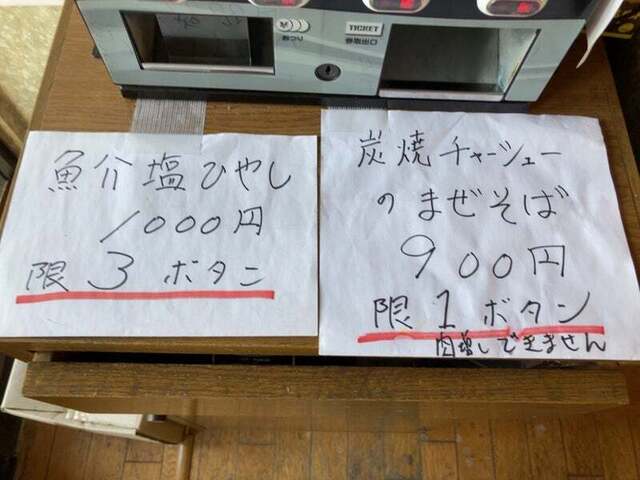 おつり
TICKET
券取出口
魚介塩ひやし
1000円
限3ボタン
炭焼チャーシュー
のまぜそば
900円
限1ボタン
肉増しできません